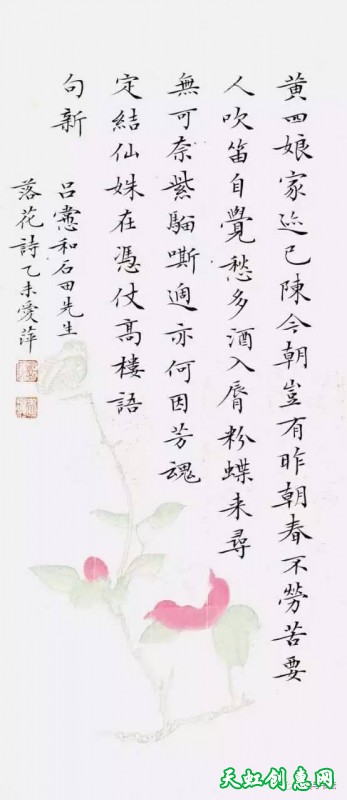 黄四娘家迹已陳今朝豈有昨朝春不勞苦要
人吹笛自覺愁多酒入脣粉蝶来尋
無可奈紫騮嘶過亦何因芳魂
定結仙姝在憑仗高樓語
句新
吕㦂和石田先生
落花詩乙未愛萍
天虹创惠网